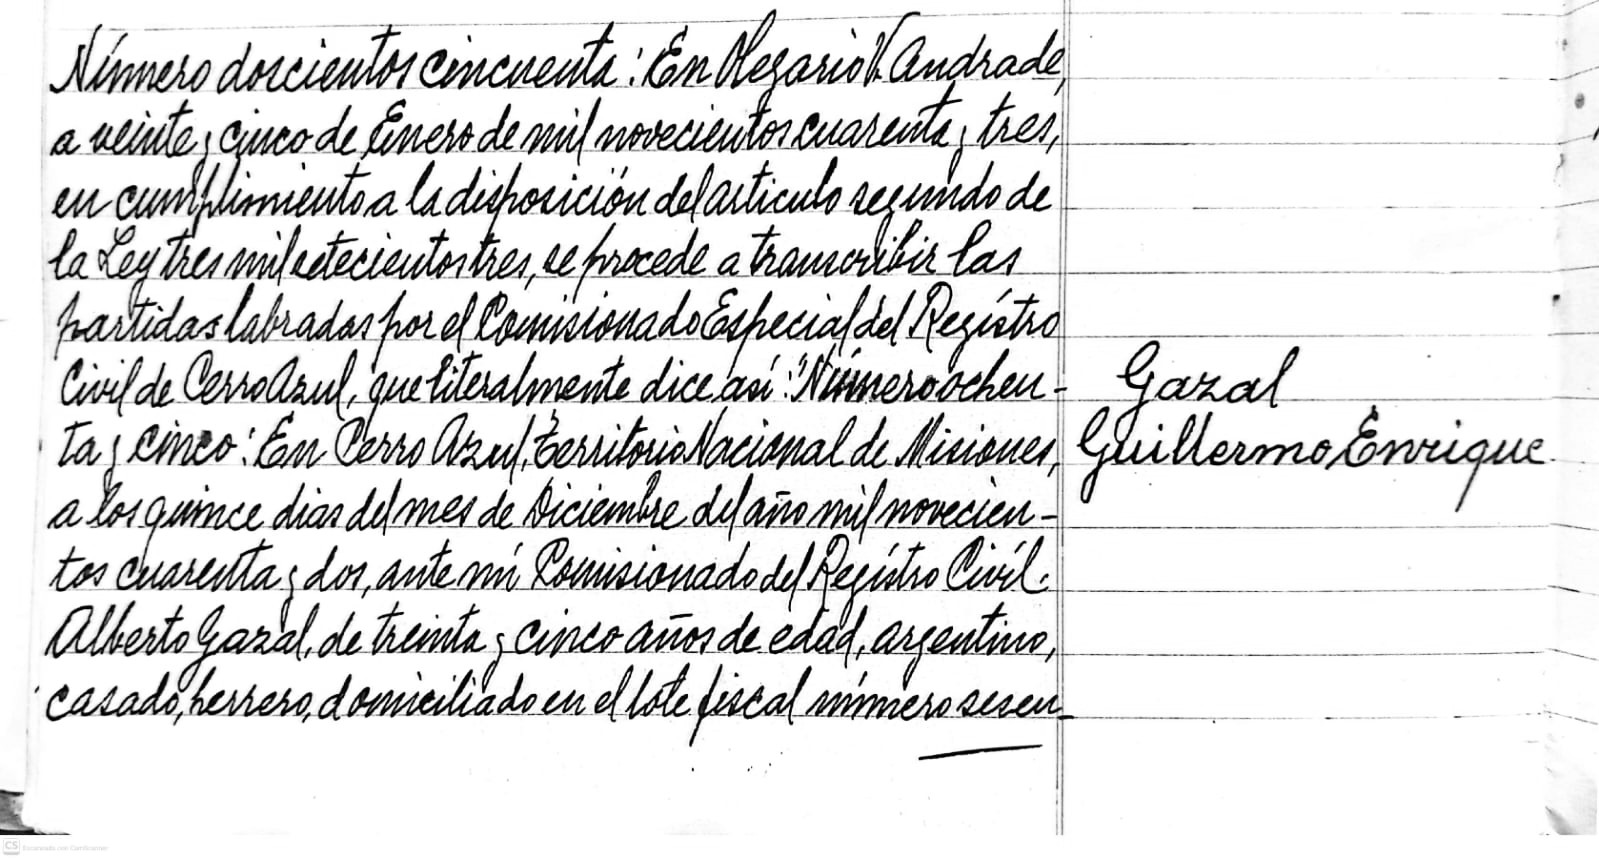 Número doscientos cincuenta: En Olegario V. Andrade,
a veinte y cinco de Enero de mil novecientos cuarenta y tres,
en cumplimiento a la disposición del artículo segundo de
la Ley tres mil setecientos tres, se procede a transcribir las
partidas labradas por el Comisionado Especial del Regístro
Civil de Cerro Azul, que literalmente dice así: "Número ochen-
ta y cinco: En Cerro Azul, Territorio Nacional de Misiones,
a los quince dias del mes de Diciembre del año mil novecien-
tos cuarenta y dos, ante mí Comisionado del Regístro Civíl:
Alberto Gazal, de treinta y cinco años de edad, argentino,
casado, herrero, domiciliado en el lote fiscal número sesen-
Gazal
Guillermo Enrique.
CS Escaneado con CamScanner